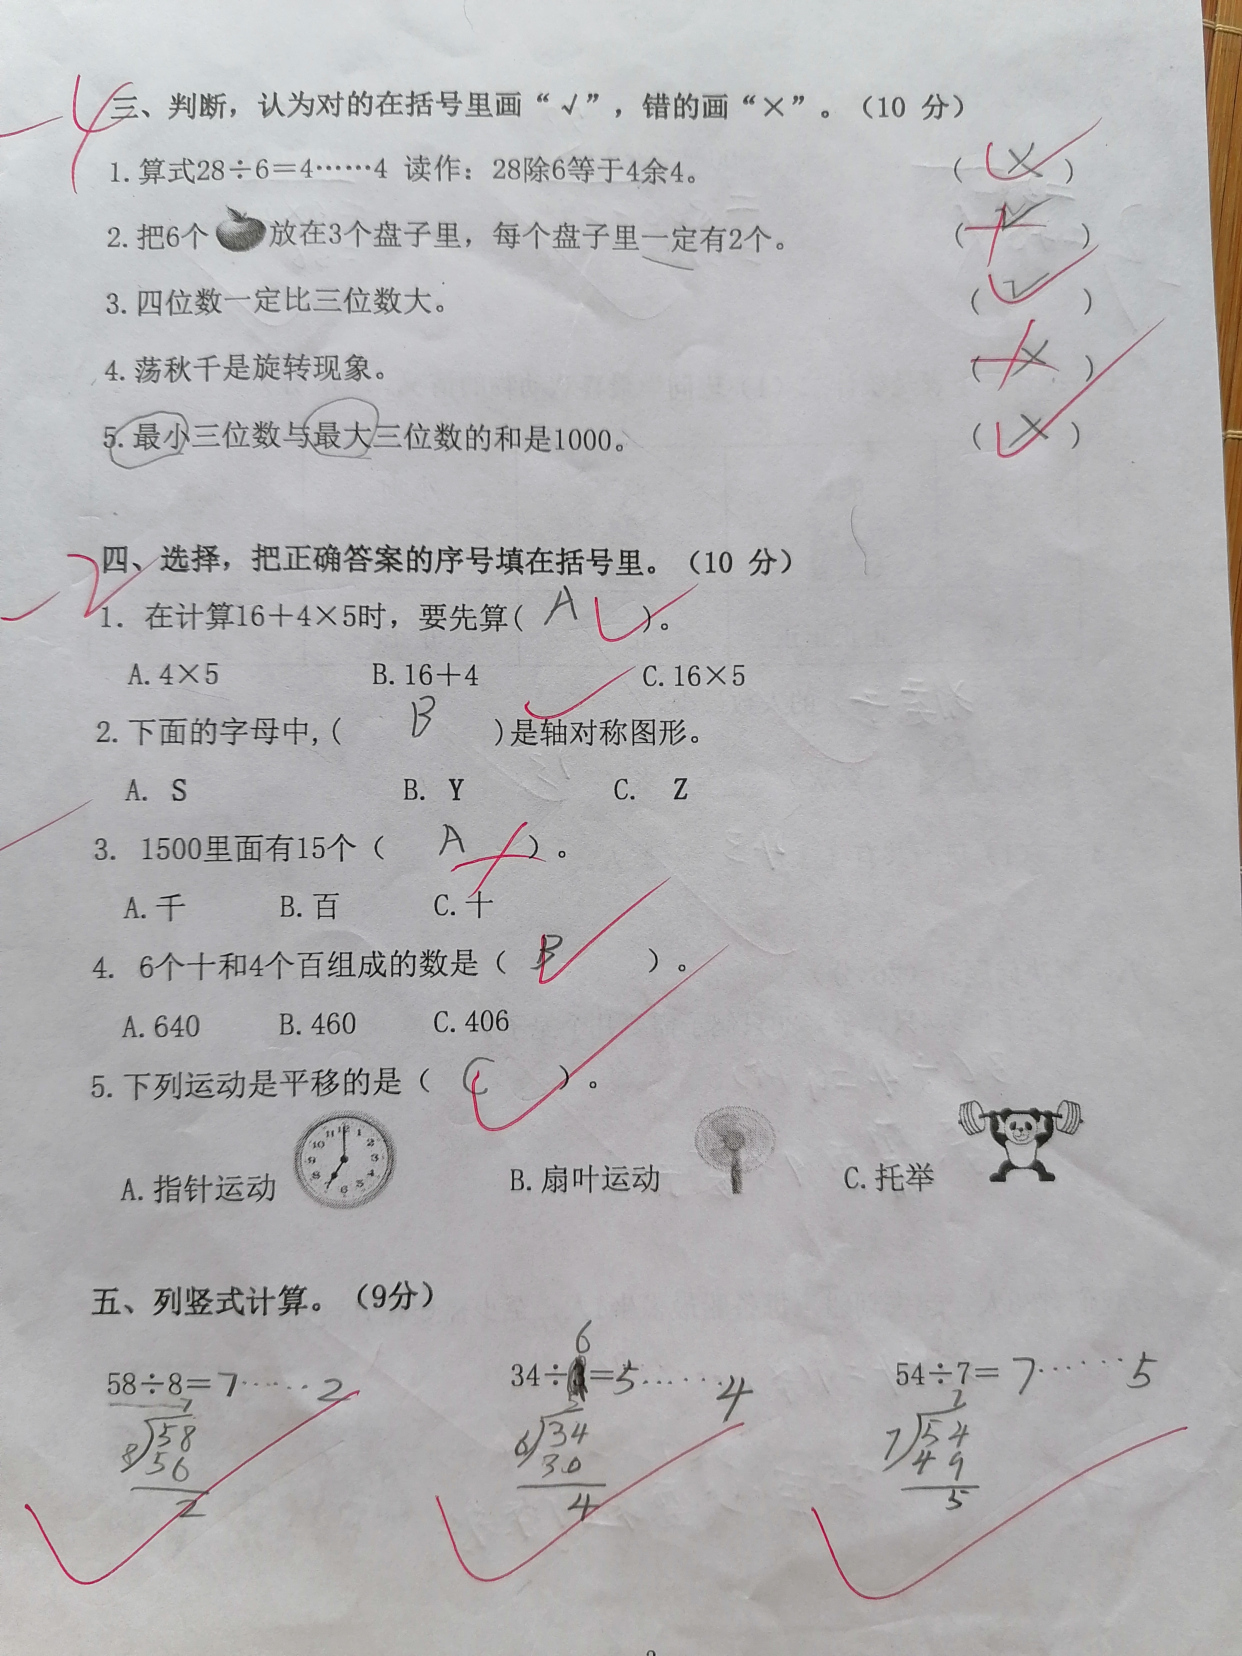 三、判断，认为对的在括号里画“√”，错的画“×”。（10 分）
1. 算式28÷6=4……4 读作：28除6等于4余4。 （ × ）
2. 把6个 放在3个盘子里，每个盘子里一定有2个。 （ √ ）
3. 四位数一定比三位数大。 （ √ ）
4. 荡秋千是旋转现象。 （ × ）
5. 最小三位数与最大三位数的和是1000。 （ × ）
四、选择，把正确答案的序号填在括号里。（10 分）
1. 在计算16＋4×5时，要先算( A )。
A.4×5 B.16＋4 C.16×5
2. 下面的字母中,( B )是轴对称图形。
A. S B. Y C. Z
3. 1500里面有15个（ A ）。
A.千 B.百 C.十
4. 6个十和4个百组成的数是（ B ）。
A.640 B.460 C.406
5. 下列运动是平移的是（ C ）。
A.指针运动 B.扇叶运动 C.托举
五、列竖式计算。（9分）
58÷8=7……2 34÷6=5……4 54÷7=7……5
7 5 7
8 58 6 34 7 54
56 30 49
2 4 5